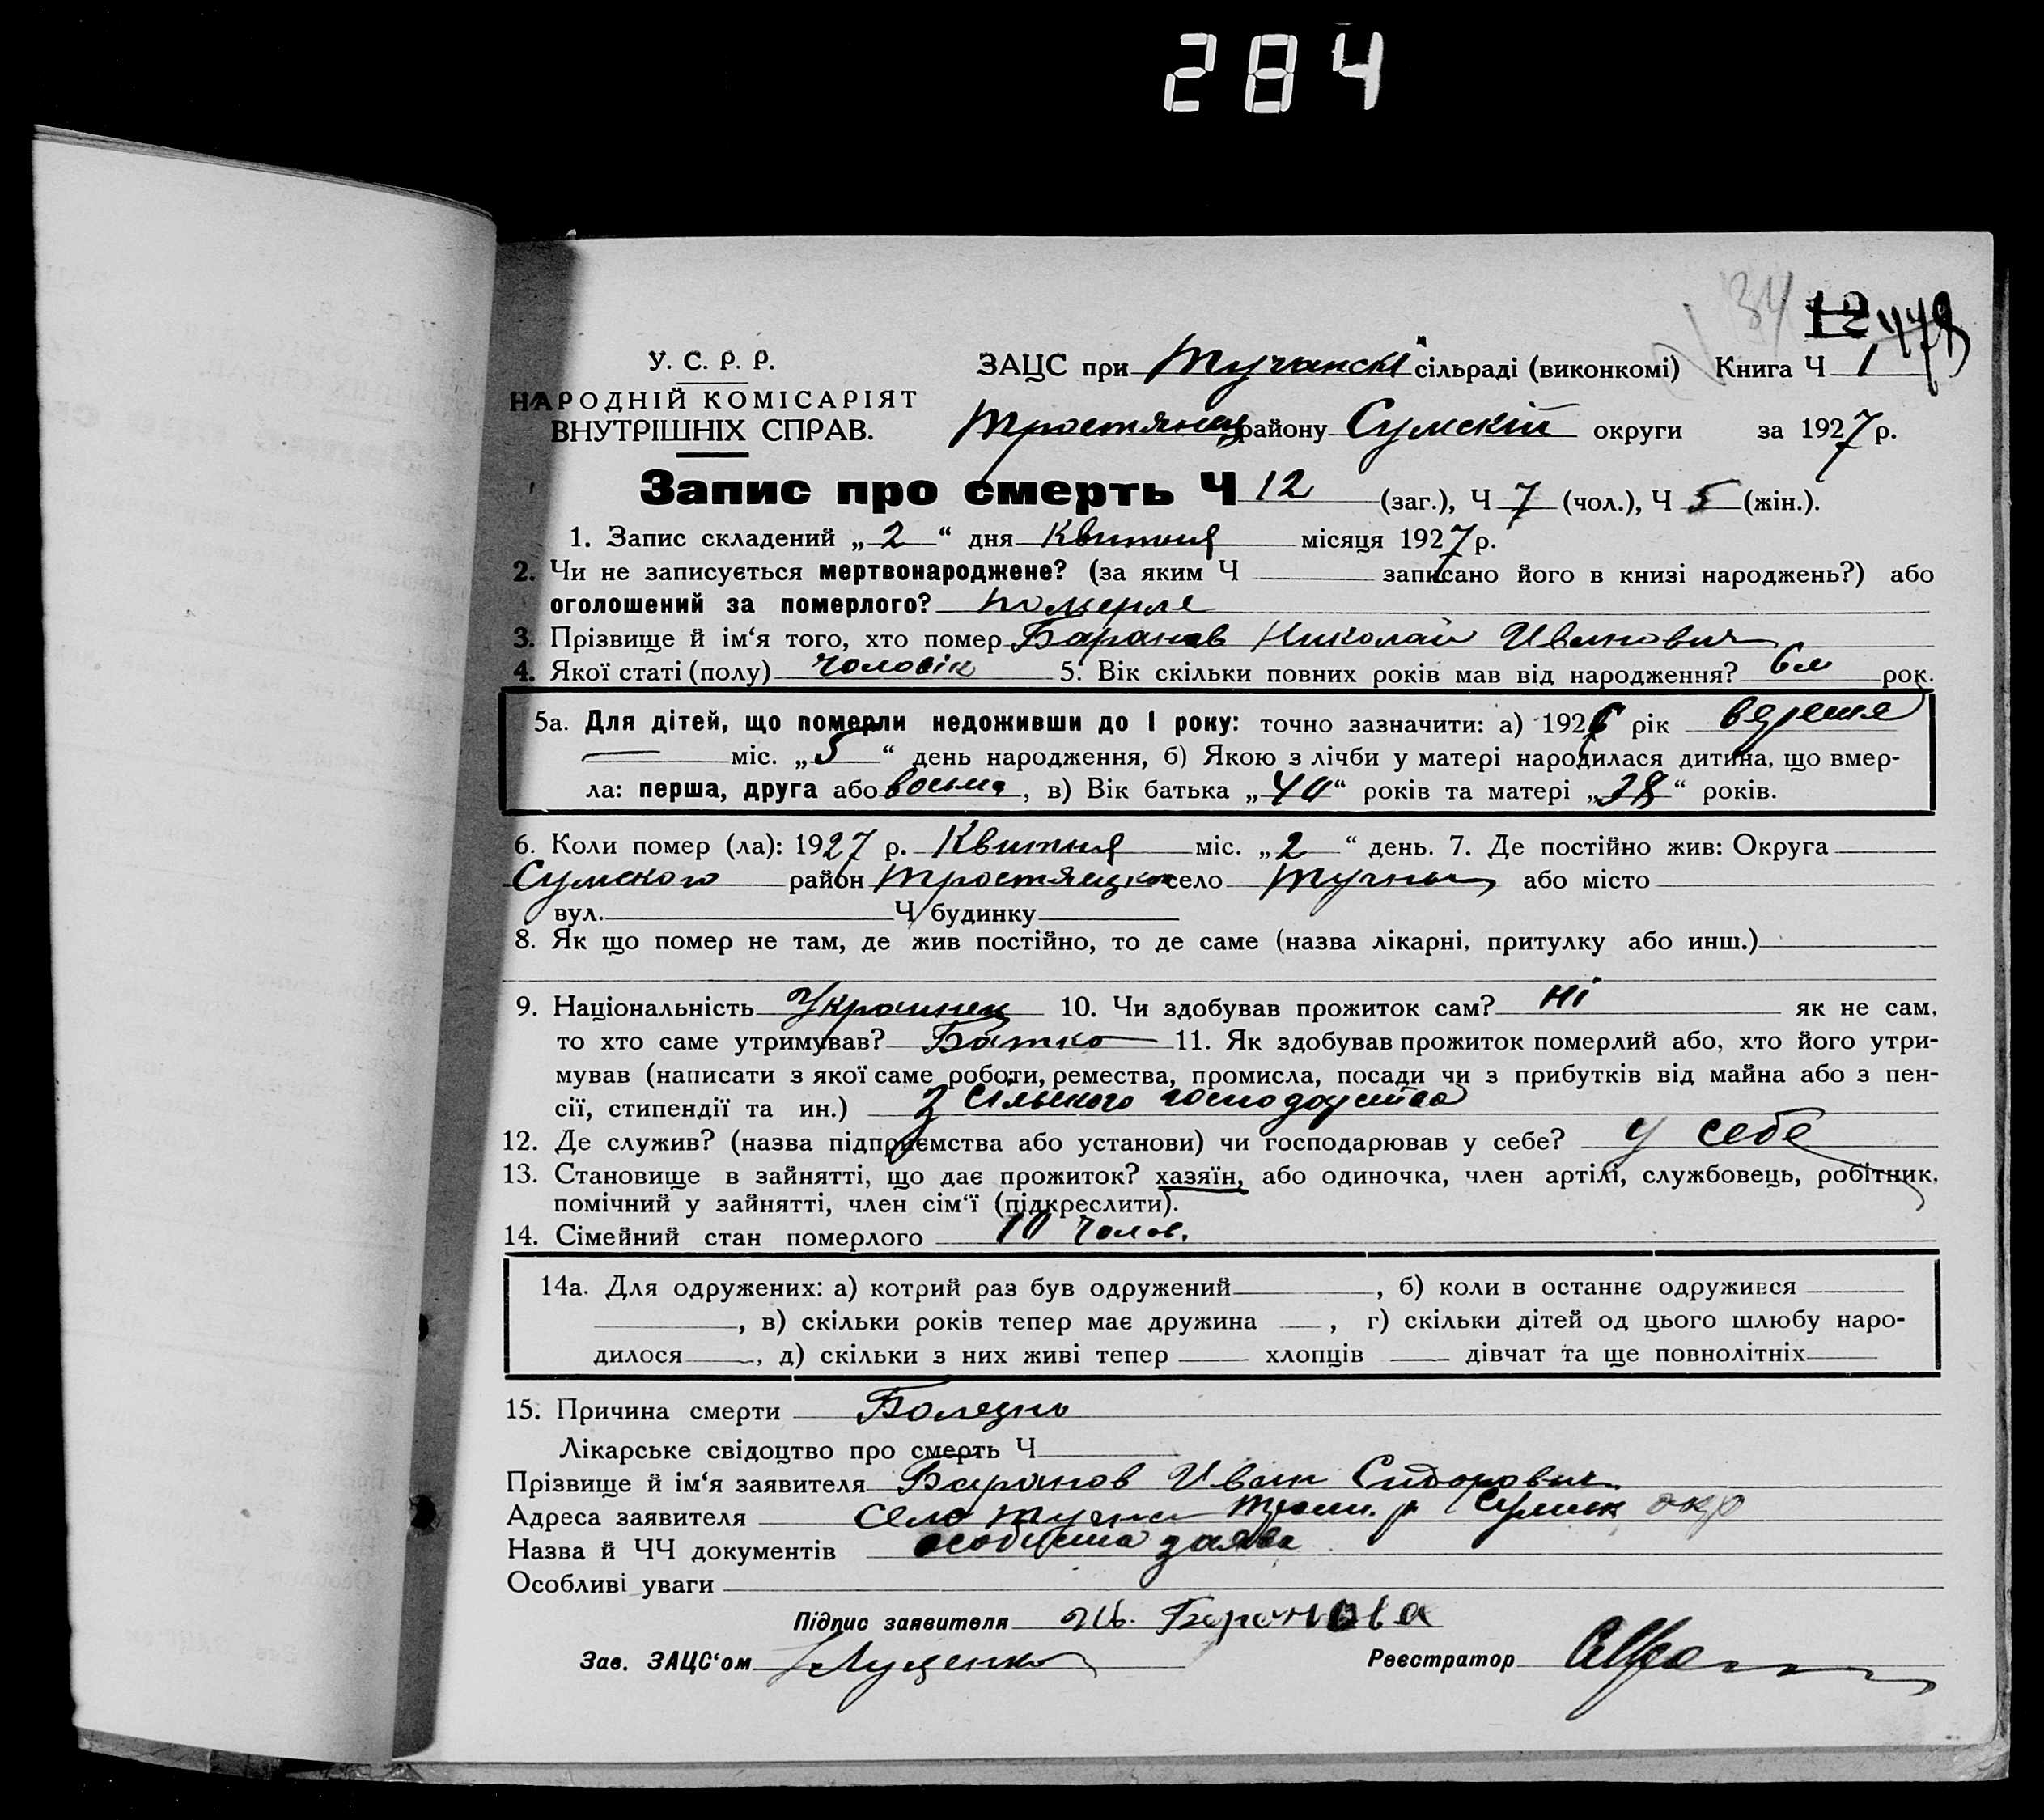 284
34
12 479
У. С. Р. Р.
НАРОДНІЙ КОМІСАРІЯТ
ВНУТРІШНІХ СПРАВ.
ЗАЦС при Тучанскі й сільраді (виконкомі) Книга Ч 1
Тростянец району Сумскій округи за 1927 р.
Запис про смерть Ч 12 (заг.), Ч 7 (чол.), Ч 5 (жін.).
1. Запис складений „ 2 “ дня Квитня місяця 1927 р.
2. Чи не записується мертвонароджене? (за яким Ч записано його в книзі народжень?) або
оголошений за померлого? померле
3. Прізвище й ім‘я того, хто помер Баранов Николай Иванович
4. Якої статі (полу) чоловік 5. Вік скільки повних років мав від народження? 6 м рок.
5а. Для дітей, що померли недоживши до 1 року: точно зазначити: а) 1926 рік
міс. „ 5 “ день народження, б) Якою з лічби у матері народилася дитина, що вмер-
ла: перша, друга або восьма, в) Вік батька „ 40 “ років та матері „ 38 “ років.
6. Коли помер (ла): 1927 р. Квитня міс. „ 2 “ день. 7. Де постійно жив: Округа
Сумского район Тростянецкого село Тучны або місто
вул. Ч будинку
8. Як що помер не там, де жив постійно, то де саме (назва лікарні, притулку або инш.)
9. Національність Украинец 10. Чи здобував прожиток сам? ні як не сам,
то хто саме утримував? Батко 11. Як здобував прожиток померлий або, хто його утри-
мував (написати з якої саме роботи, ремества, промисла, посади чи з прибутків від майна або з пен-
сії, стипендії та ин.) З сільского господарства
12. Де служив? (назва підприємства або установи) чи господарював у себе? у себе
13. Становище в зайнятті, що дає прожиток? хазяїн, або одиночка, член артілі, службовець, робітник,
помічний у зайнятті, член сім‘ї (підкреслити).
14. Сімейний стан померлого 10 чолов.
14а. Для одружених: а) котрий раз був одружений , б) коли в останнє одружився
, в) скільки років тепер має дружина , г) скільки дітей од цього шлюбу наро-
дилося , д) скільки з них живі тепер хлопців дівчат та ще повнолітніх
15. Причина смерти Болезнь
Лікарське свідоцтво про смерть Ч
Прізвище й ім‘я заявителя Баранов Иван Сидорович
Адреса заявителя село Тучна Трост. р Сумск окр
Назва й ЧЧ документів особиста заява
Особливі уваги
Підпис заявителя Ив. Баранова
Зав. ЗАЦС‘ом Луценко Реєстратор